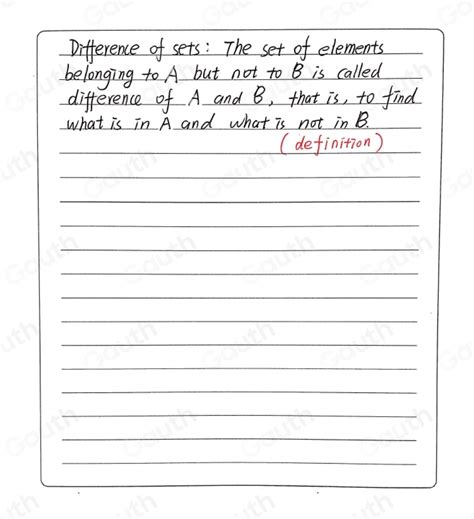 Difference of sets: The set of elements
belonging to A but not to B is called
difference of A and B, that is, to find
what is in A and what is not in B.
(definition)